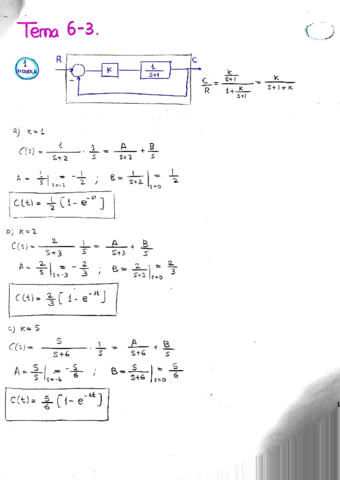 Tema 6-3.
1
R K 1/(s+1) C
-
C/R = (K/(s+1))/(1+K/(s+1)) = K/(s+1+K)
a) K=1
C(s) = 1/(s+2) · 1/s = A/(s+2) + B/s
A = 1/s|s=-2 = -1/2 ; B = 1/(s+2)|s=0 = 1/2
C(t) = 1/2 [1-e^-2t]
b) K=2
C(s) = 2/(s+3) 1/s = A/(s+3) + B/s
A = 2/s|s=-3 = -2/3 ; B = 2/(s+3)|s=0 = 2/3
C(t) = 2/3 [1-e^-3t]
c) K=5
C(s) = 5/(s+6) · 1/s = A/(s+6) + B/s
A = 5/s|s=-6 = -5/6 ; B = 5/(s+6)|s=0 = 5/6
C(t) = 5/6 [1-e^-6t]
1